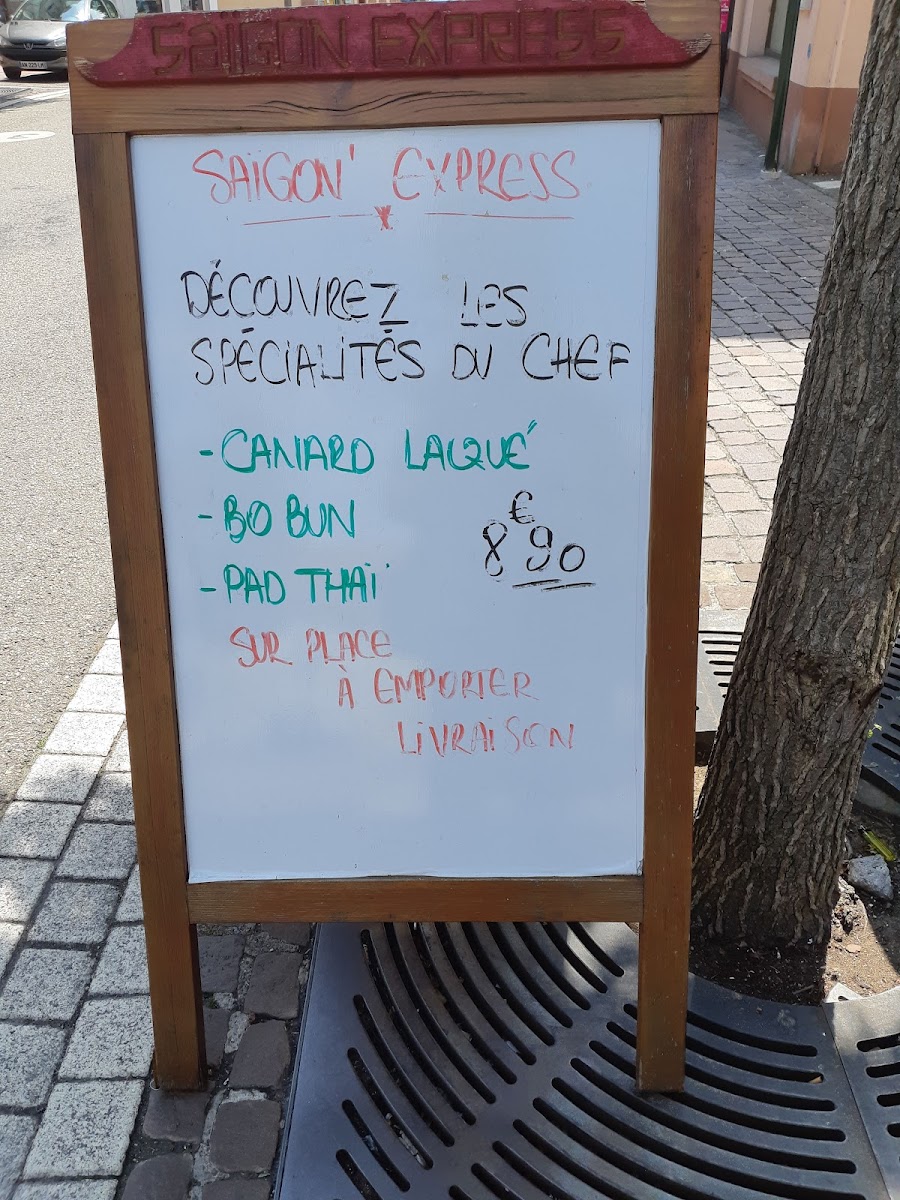 SAÏGON EXPRESS
SAÏGON' EXPRESS
DÉCOUVREZ LES
SPÉCIALITÉS DU CHEF
- CANARD LAQUÉ
- BO BUN
€
8 90
- PAD THAÏ
SUR PLACE
À EMPORTER
LIVRAISON